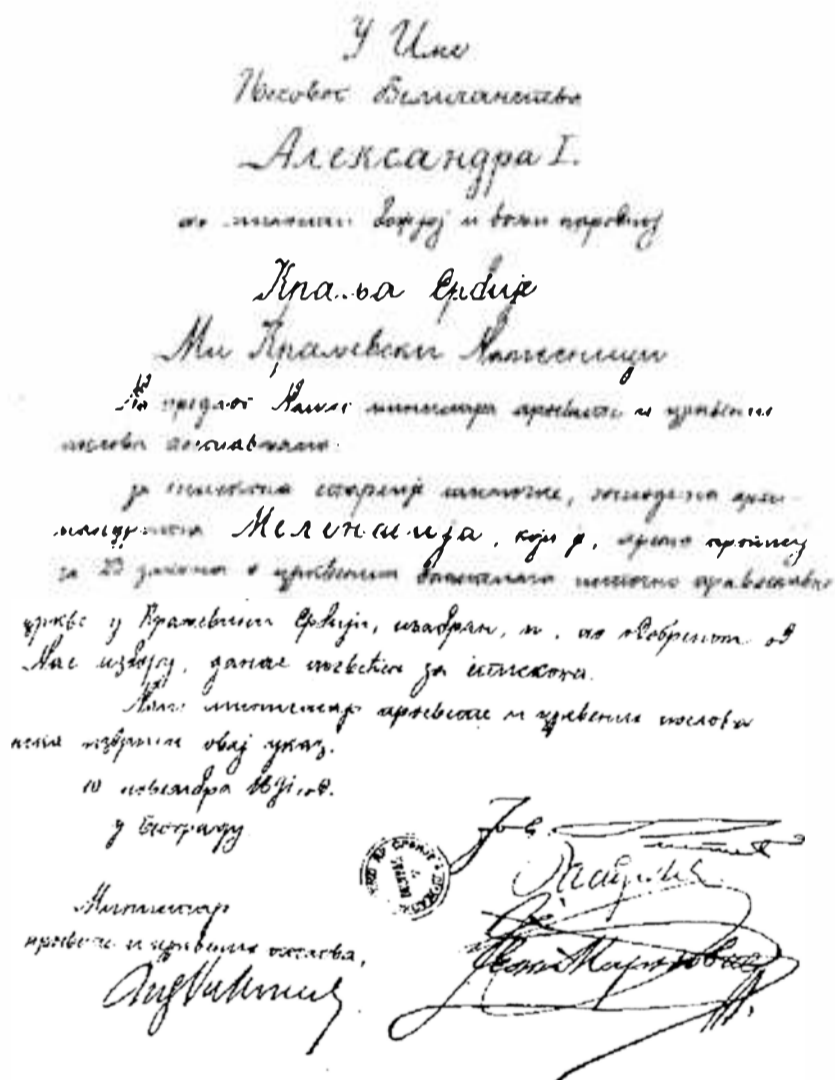 У Име
Његовог Величанства
Александра I.
по милости Божјој и вољи народној
Краља Србије
Ми Краљевски Намесници
На предлог Нашег министра просвете и црквених
послова постављамо:
за епископа епархије шабачке, господина архи-
мандрита Мелентија, који је, према пропису
чл 23 закона о црквеним властима источно православне
цркве у Краљевини Србији, изабран, и, по одобреном од
Нас избору, данас посвећен за епископа.
Наш министар просвете и црквених послова
нека изврши овај указ.
10 новембра 1891 год.
у Београду
Министар
просвете и црквених послова,